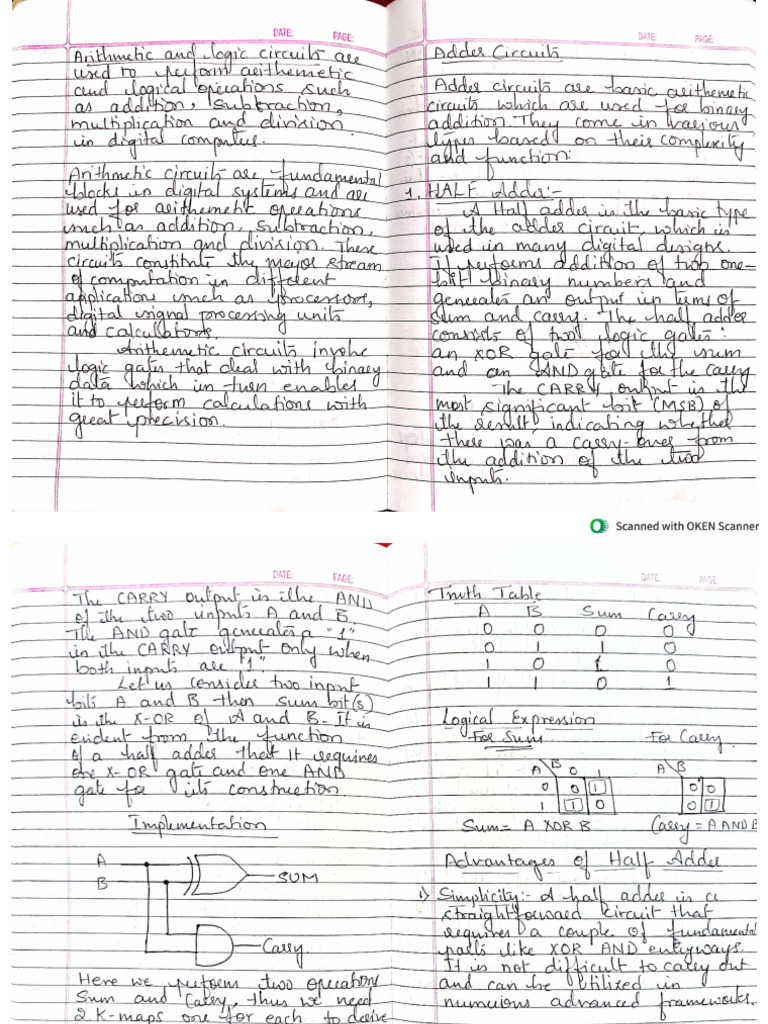 DATE: PAGE:
Arithmetic and logic circuits are
used to perform arithemetic
and logical operations such
as addition, subtraction,
multiplication and division
in digital computers.
Arithmetic circuits are fundamental
blocks in digital systems and are
used for arithemetic operations
such as addition, subtraction,
multiplication and division. These
circuits constitute the major stream
of computation in different
applications such as processors,
digital signal processing units
and calculators.
Arithemetic circuits involve
logic gates that deal with binary
data which in turn enables
it to perform calculations with
great precision.
DATE: PAGE:
Adder Circuits
Adder circuits are basic arithemetic
circuits which are used for binary
addition. They come in various
types based on their complexity
and function:
1. HALF Adder:-
A Half adder is the basic type
of the adder circuit, which is
used in many digital designs.
It performs addition of two one-
bit binary numbers and
generates an output in terms of
sum and carry. The half adder
consists of two logic gates:
an XOR gate for the sum
and an AND gate for the carry
The CARRY output is the
most significant bit (MSB) of
the result indicating whether
there was a carry-over from
the addition of the two
inputs.
Scanned with OKEN Scanner
DATE: PAGE:
The CARRY output is the AND
of the two inputs A and B.
The AND gate generates a "1"
in the CARRY output only when
both inputs are "1".
Let us consider two input
bits A and B then sum bit(s)
is the X-OR of A and B. It is
evident from the function
of a half adder that it requires
one X-OR gate and one AND
gate for its construction.
Implementation
A
B
SUM
Carry
Here we perform two operations
Sum and Carry, thus we need
2 K-maps one for each to derive
DATE: PAGE:
Truth Table
A B Sum Carry
0 0 0 0
0 1 1 0
1 0 1 0
1 1 0 1
Logical Expression
For Sum For Carry
A B 0 1 A B
0 0 1 0 0
1 1 0 0 1
Sum= A XOR B Carry = A AND B
Advantages of Half Adder
1) Simplicity:- A half adder is a
straightforward circuit that
requires a couple of fundamental
parts like XOR AND entryways.
It is not difficult to carry out
and can be utilized in
numerious advanced frameworks.